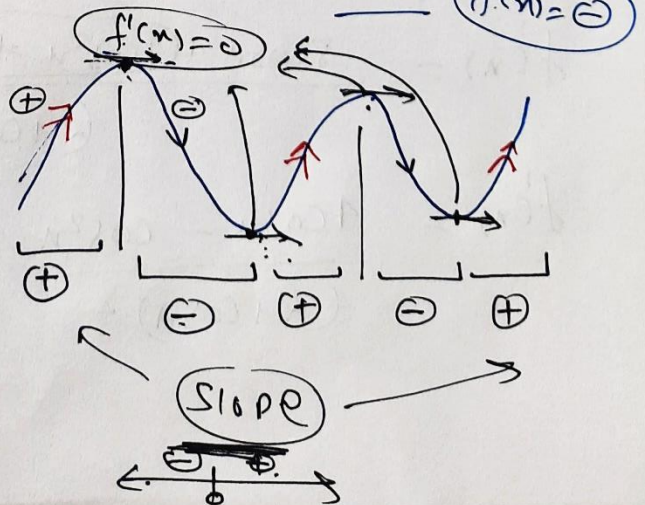 f'(x) = ⊖
f'(x) = 0
⊕
⊖
⊕ ⊖ ⊕ ⊖ ⊕
Slope
⊖ ⊕
0